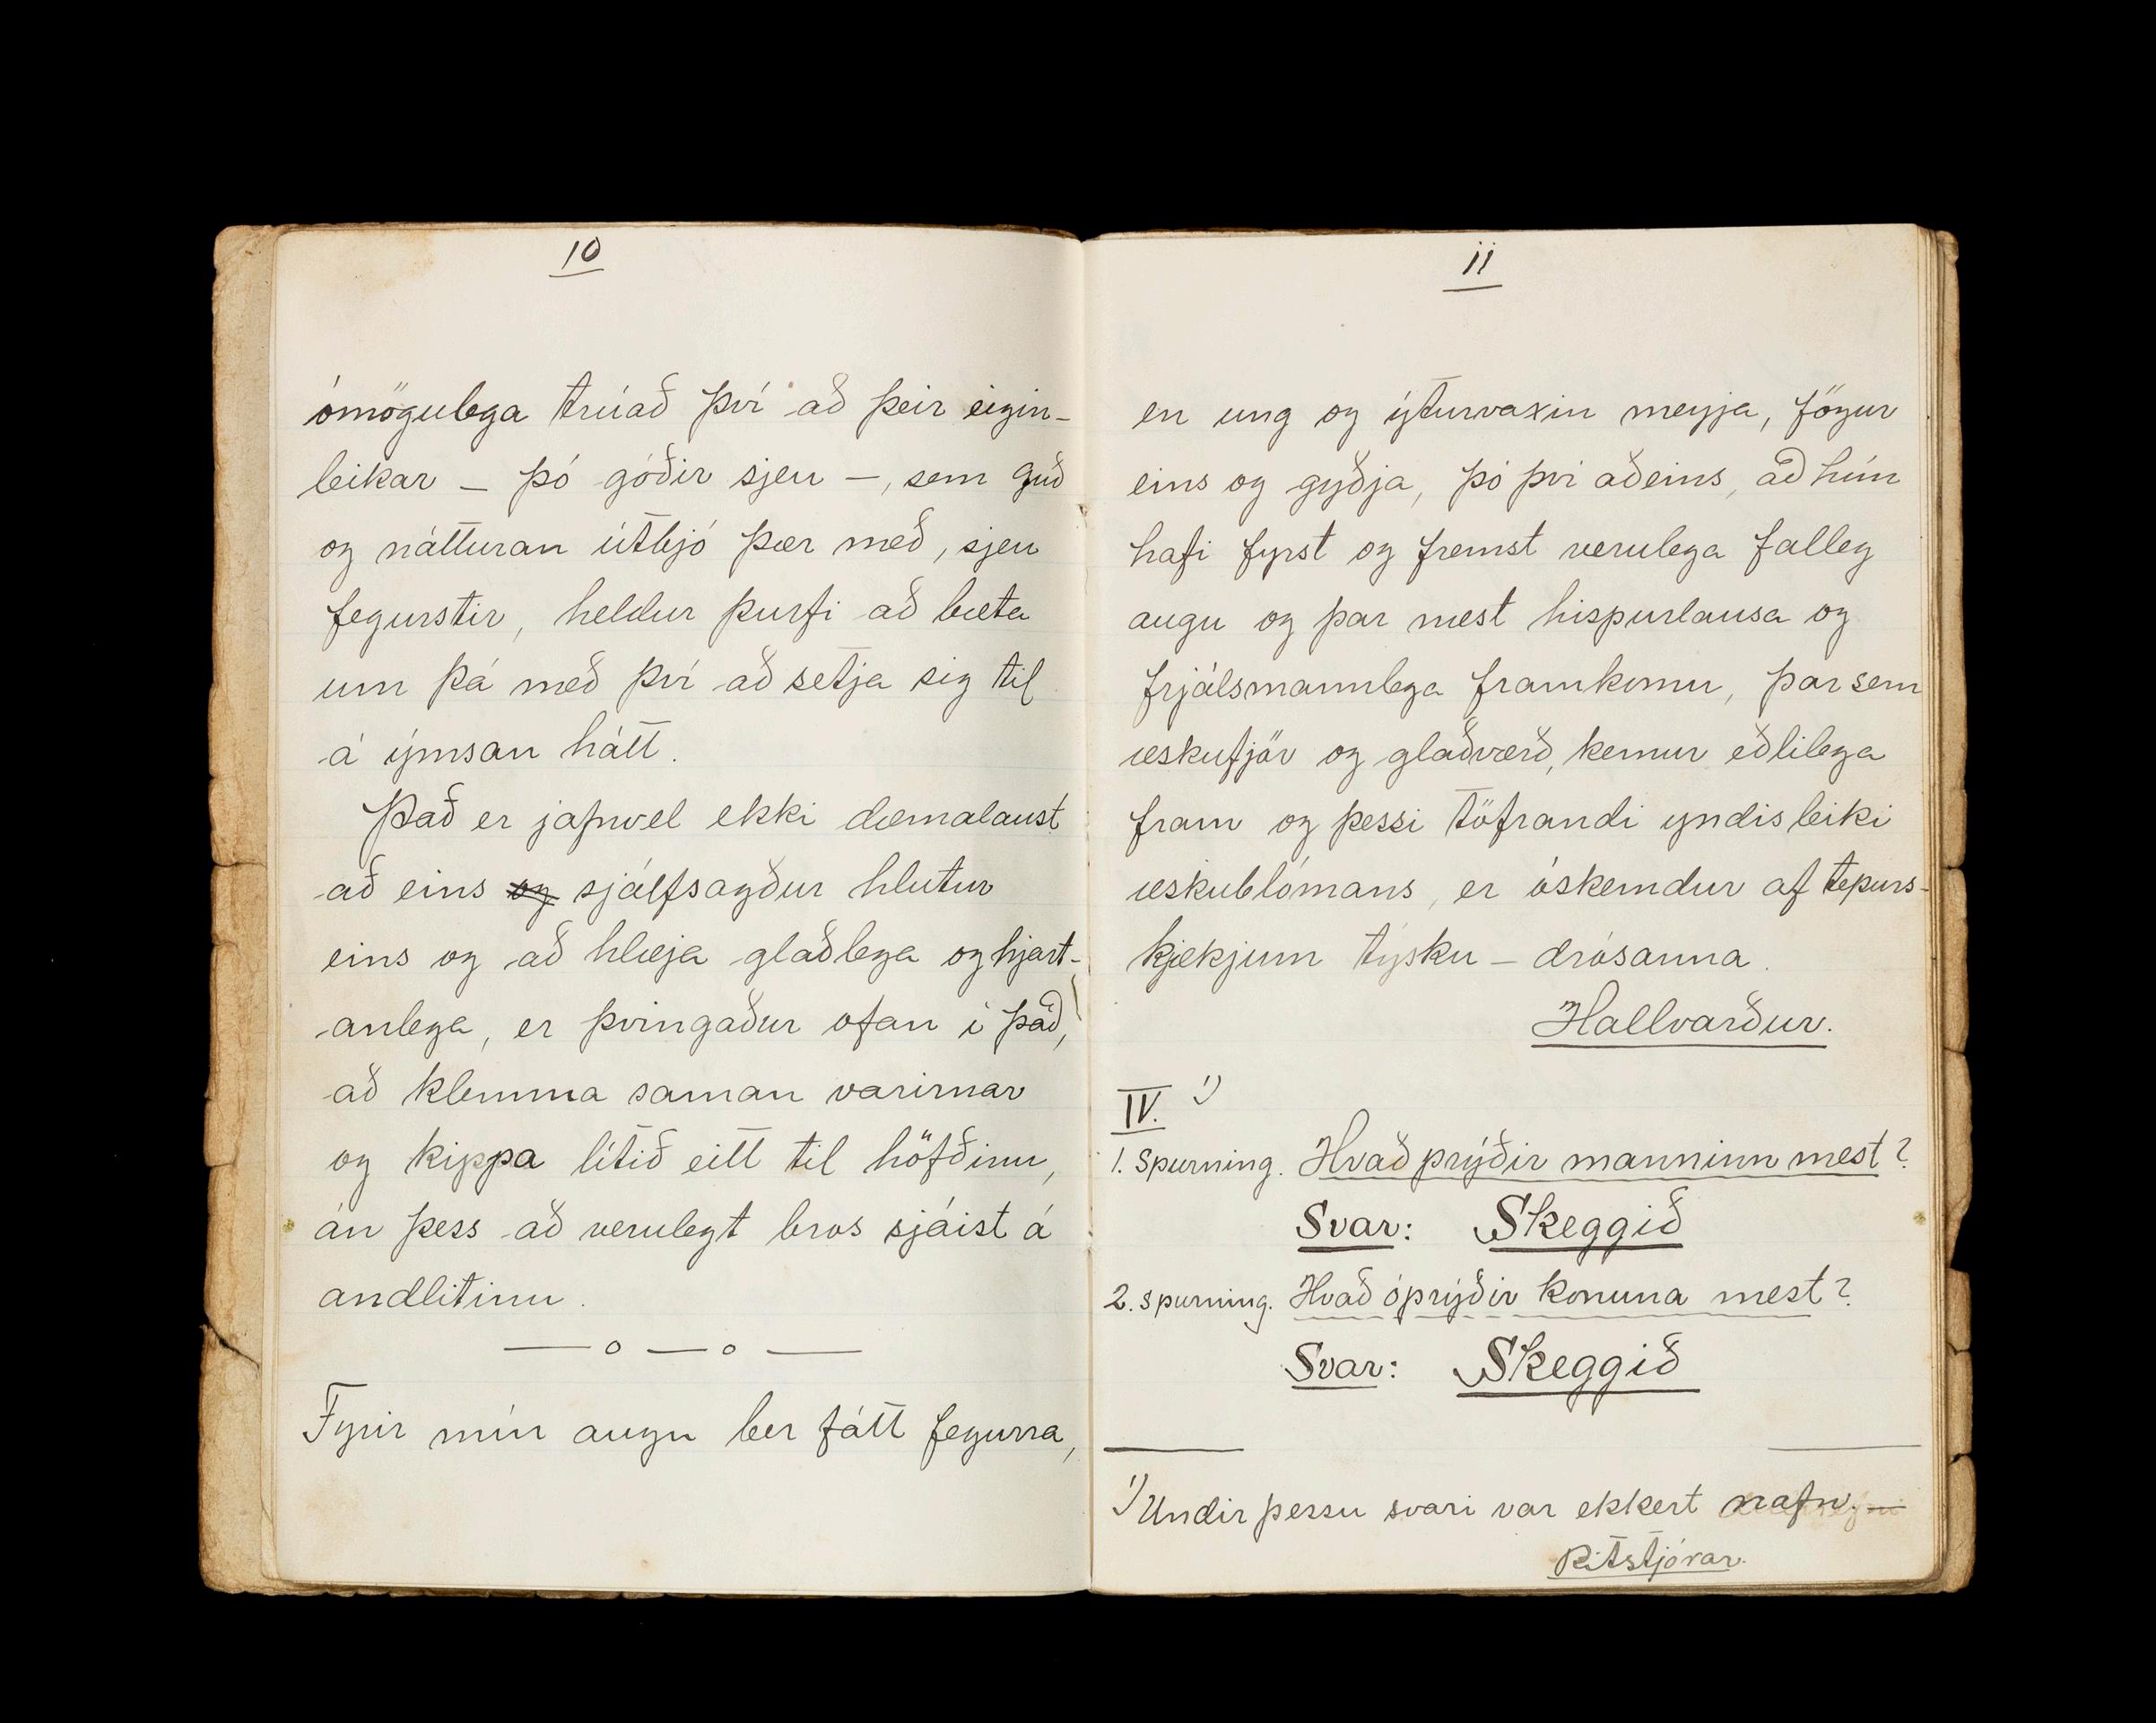 10
ómögulega trúað því að þeir eigin-
leikar – þó góðir sjeu –, sem guð
og náttúran útbjó þær með, sjeu
fegurstir, heldur þurfi að bæta
um þá með því að setja sig til
á ýmsan hátt.
Það er jafnvel ekki dæmalaust
að eins og sjálfsagður hlutur
eins og að hlæja glaðlega og hjart-
anlega, er þvingaður ofan í það,
að klemma saman varirnar
og kippa lítið eitt til höfðinu,
án þess að verulegt bros sjáist á
andlitinu.
— o — o —
Fyrir mín augu ber fátt fegurra,
11
en ung og ýturvaxin meyja, fögur
eins og gyðja, þó því aðeins, að hún
hafi fyrst og fremst verulega falleg
augu og þar mest hispurlausa og
frjálsmannlega framkomu, þar sem
æskufjör og glaðværð, kemur eðlilega
fram og þessi töfrandi yndisleiki
æskublómans, er óskemdur af tepurs-
kjækjum týsku – drósanna.
Hallvarður.
IV. 1)
1. Spurning. Hvað prýðir manninn mest?
Svar: Skeggið
2. spurning. Hvað óprýðir konuna mest?
Svar: Skeggið
1) Undir þessu svari var ekkert nafn. —
Ritstjórar.